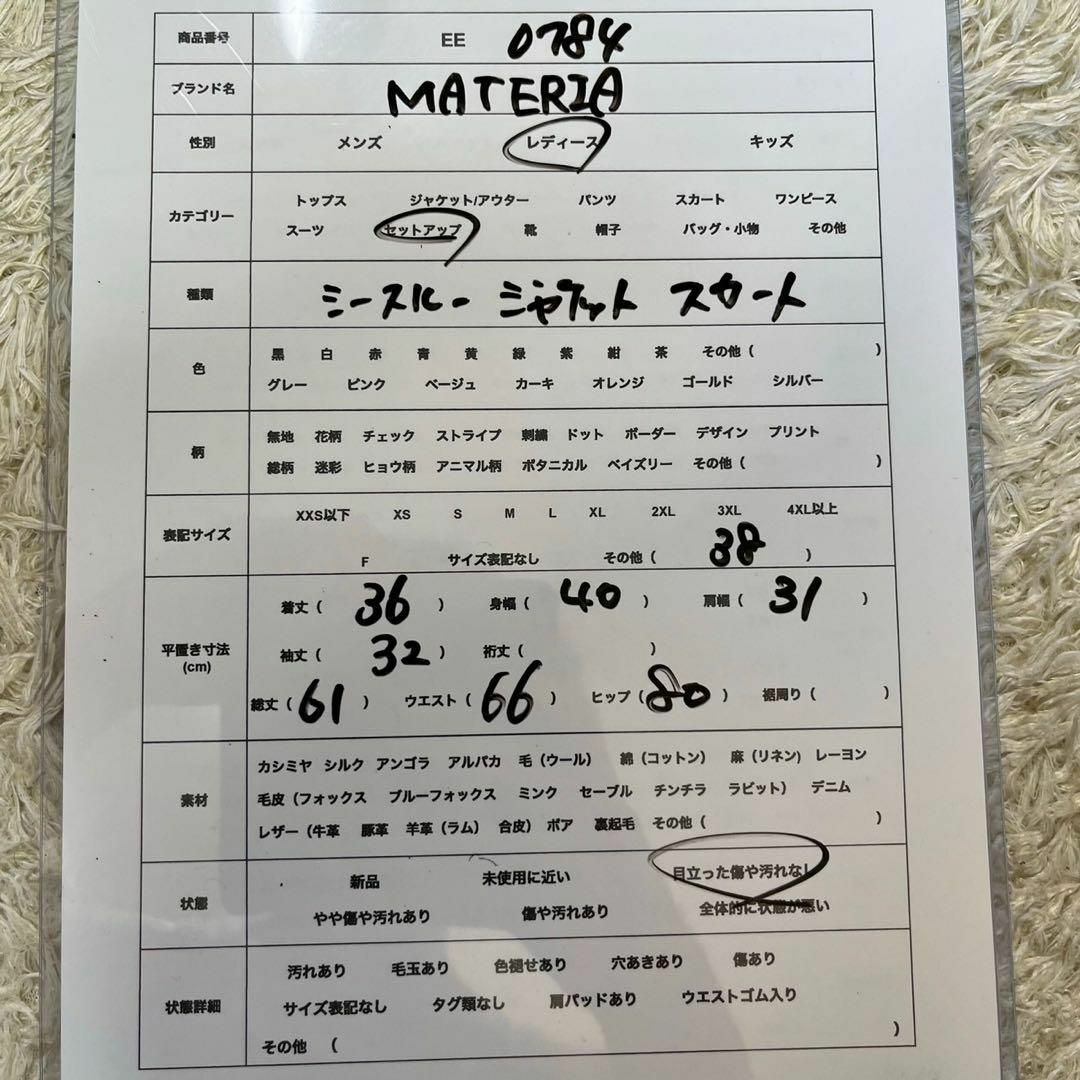 商品番号 EE 0784
ブランド名 MATERIA
性別 メンズ レディース キッズ
カテゴリー トップス ジャケット/アウター パンツ スカート ワンピース
スーツ セットアップ 靴 帽子 バッグ・小物 その他
種類 シースルー ジャケット スカート
色 黒 白 赤 青 黄 緑 紫 紺 茶 その他（ ）
グレー ピンク ベージュ カーキ オレンジ ゴールド シルバー
柄 無地 花柄 チェック ストライプ 刺繍 ドット ボーダー デザイン プリント
総柄 迷彩 ヒョウ柄 アニマル柄 ボタニカル ペイズリー その他（ ）
表記サイズ XXS以下 XS S M L XL 2XL 3XL 4XL以上
F サイズ表記なし その他（ 38 ）
平置き寸法 (cm) 着丈（ 36 ） 身幅（ 40 ） 肩幅（ 31 ）
袖丈（ 32 ） 裄丈（ ）
総丈（ 61 ） ウエスト（ 66 ） ヒップ（ 80 ） 裾周り（ ）
素材 カシミヤ シルク アンゴラ アルパカ 毛（ウール） 綿（コットン） 麻（リネン） レーヨン
毛皮（フォックス ブルーフォックス ミンク セーブル チンチラ ラビット） デニム
レザー（牛革 豚革 羊革（ラム） 合皮） ボア 裏起毛 その他（ ）
状態 新品 未使用に近い 目立った傷や汚れなし
やや傷や汚れあり 傷や汚れあり 全体的に状態が悪い
状態詳細 汚れあり 毛玉あり 色褪せあり 穴あきあり 傷あり
サイズ表記なし タグ類なし 肩パッドあり ウエストゴム入り
その他 （ ）